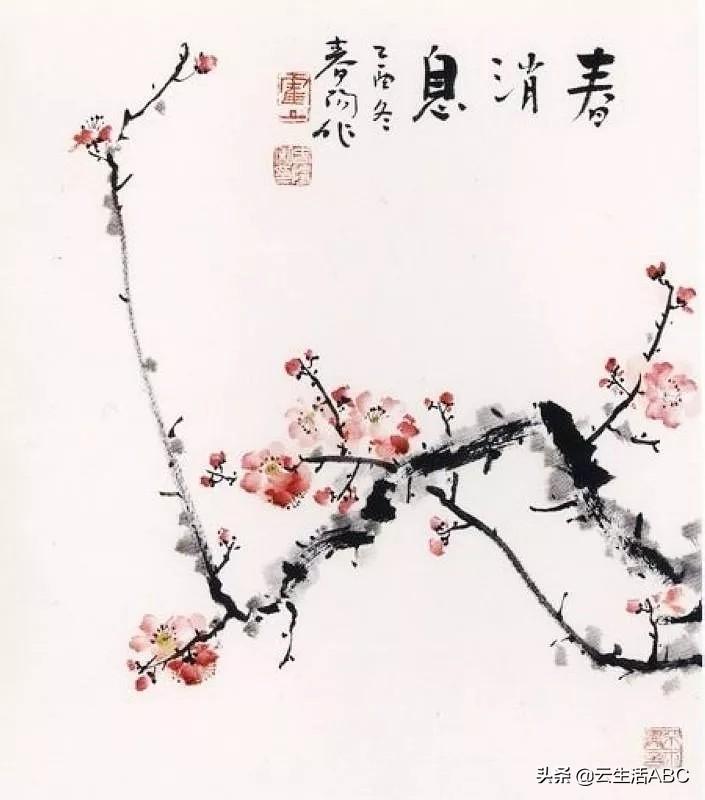 春消息
乙酉冬
春阳作
霍
头条 @云生活ABC